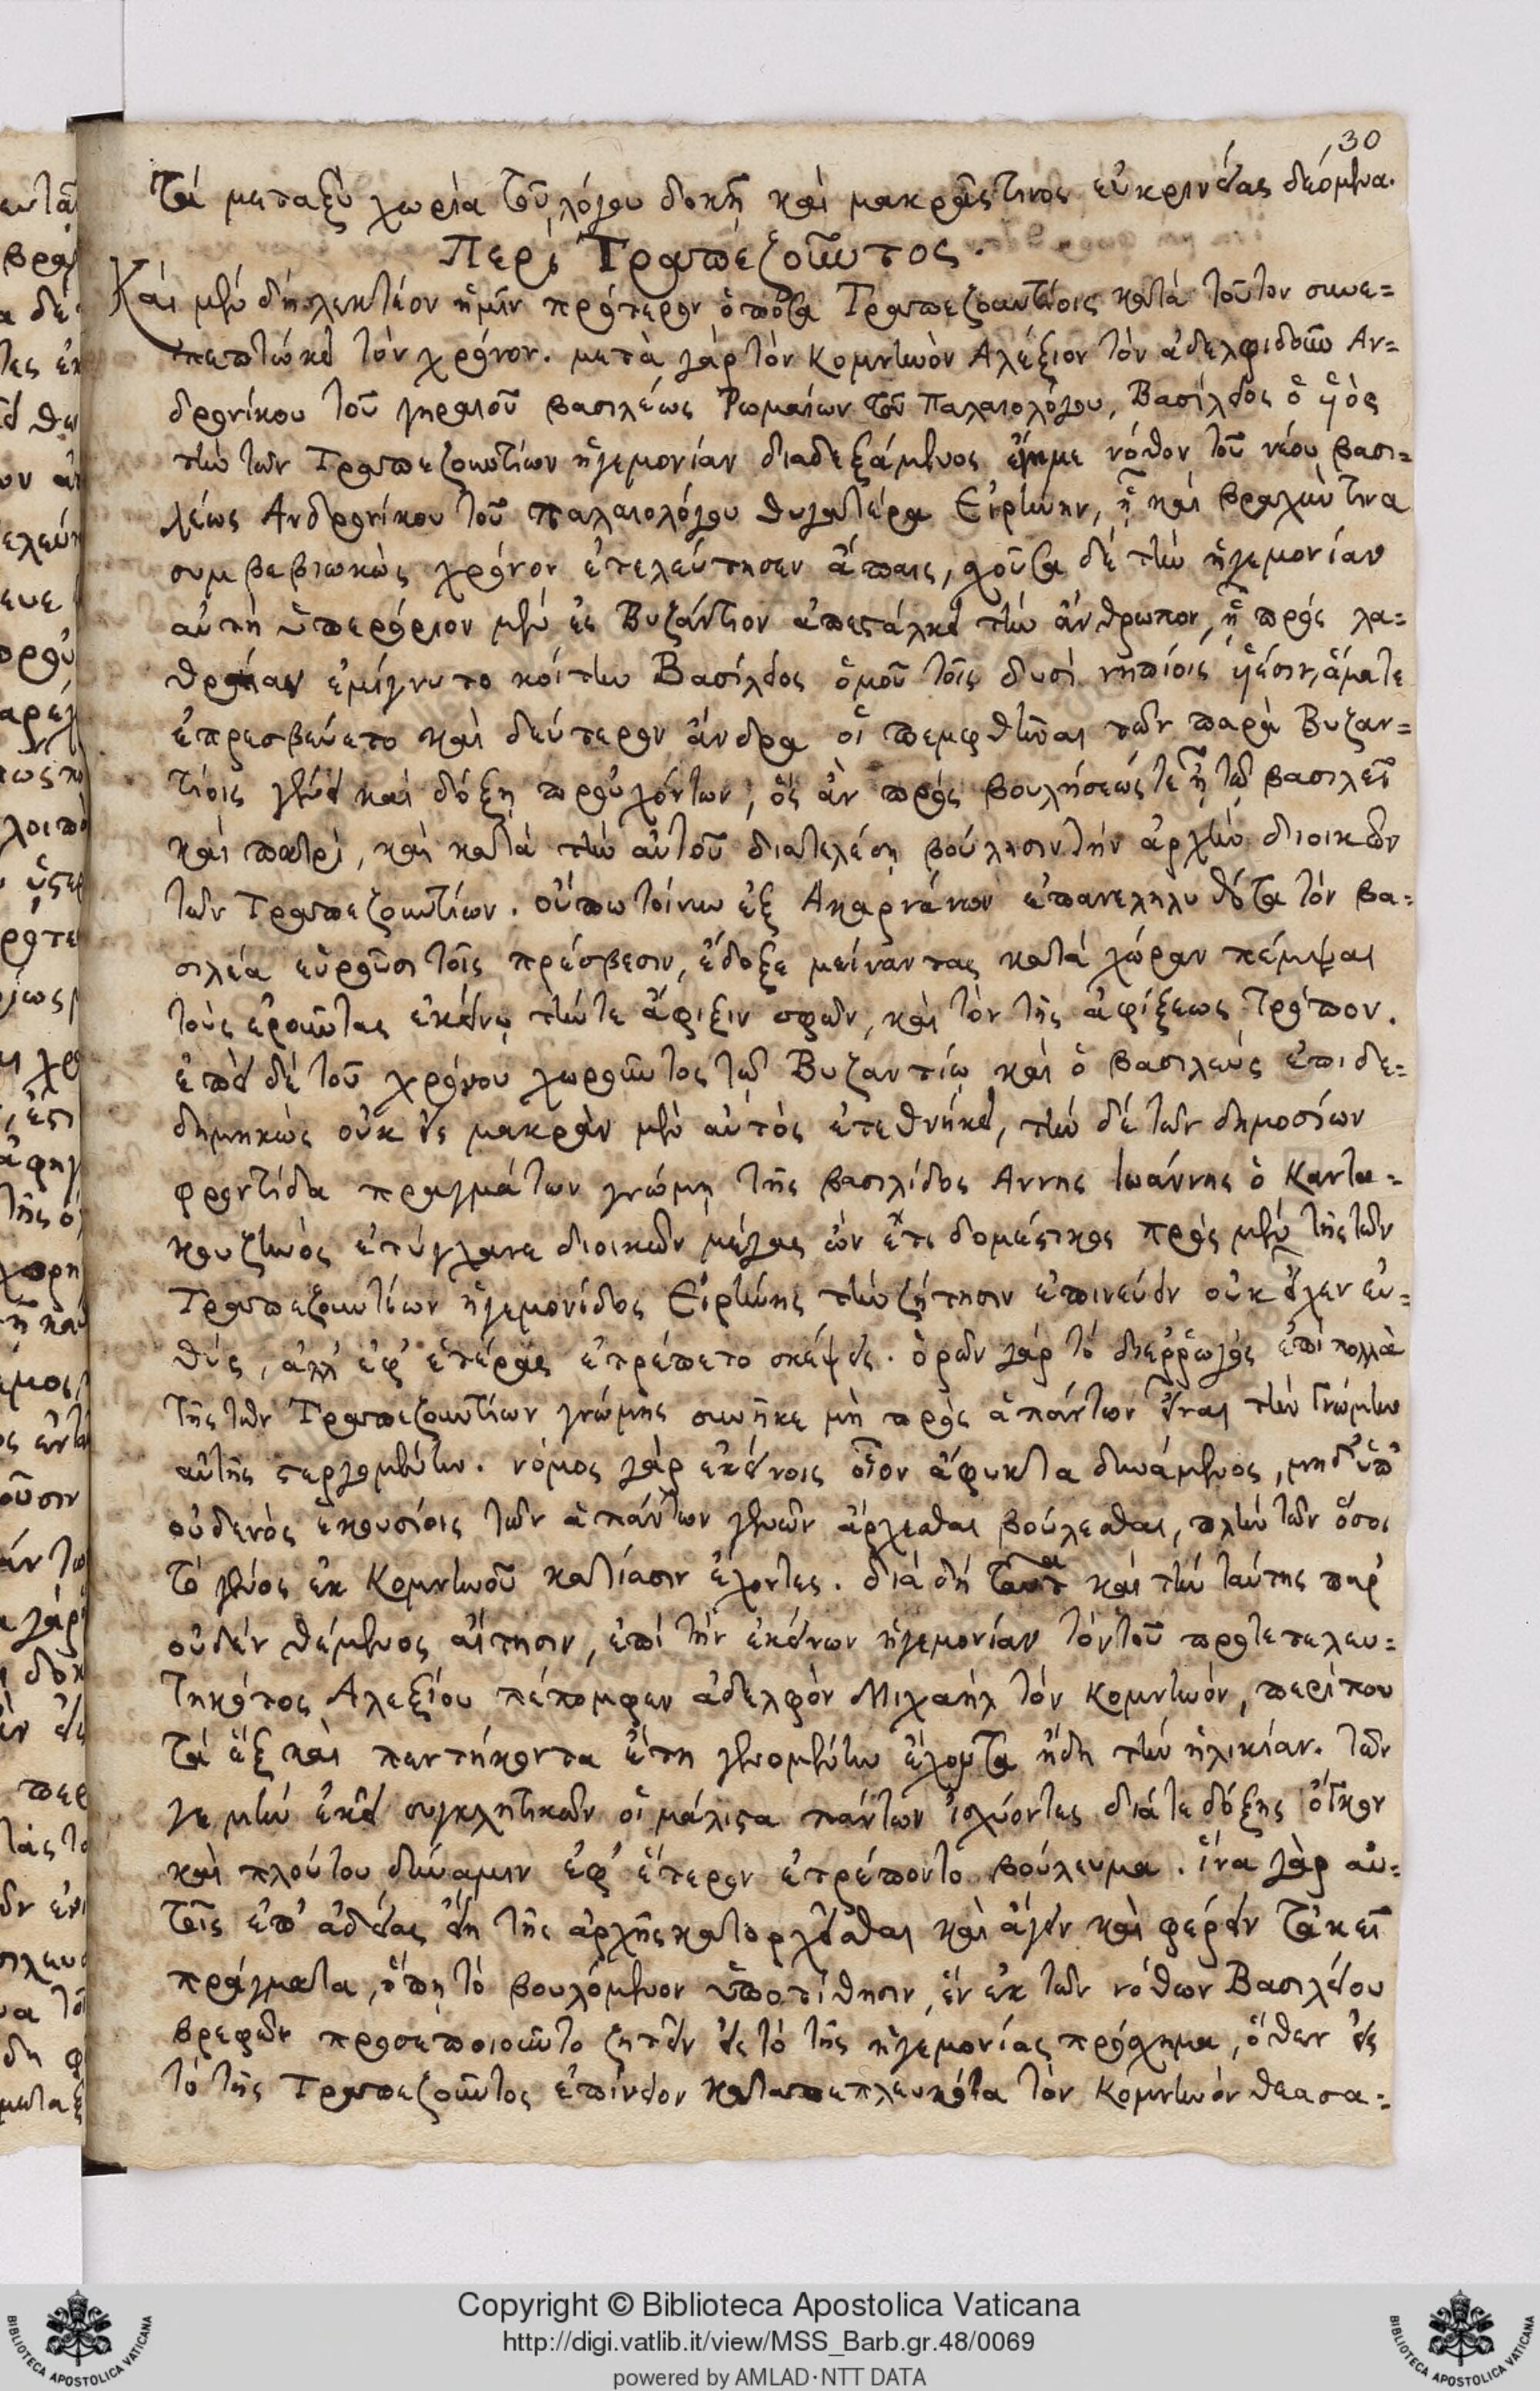 30
Τὰ μεταξὺ χωρία τοῦ λόγου δοκῆ καὶ μακρᾶς τινος εὐκρινείας δεόμενα.
Περὶ Τραπεζοῦντος.
Καὶ μὲν δὴ λεκτέον ἡμῖν πρότερον ὁπόσα Τραπεζουντίοις κατὰ τοῦτον συνε=
πεπτώκει τὸν χρόνον. μετὰ γὰρ τὸν Κομνηνὸν Αλέξιον τὸν ἀδελφιδοῦν Αν=
δρονίκου τοῦ γηραιοῦ βασιλέως Ρωμαίων τοῦ Παλαιολόγου, Βασίλειος ὁ ὑιὸς
τὴν τῶν Τραπεζουντίων ἡγεμονίαν διαδεξάμενος ἔγημε νόθον τοῦ νέου βασι=
λέως Ανδρονίκου τοῦ παλαιολόγου θυγατέρα Εἰρήνην, ᾗ καὶ βραχύν τινα
συμβεβιωκὼς χρόνον ἐτελεύτησεν ἄπαις, χοῦσα δὲ τὴν ἡγεμονίαν
αὐτὴ ὑπερόριον μὲν ἐς Βυζάντιον ἀπεστάλκει τὴν ἄνθρωπον, ᾗ πρὸς λα=
θραίαν ἐμίγνυτο κοίτην Βασίλειος ὁμοῦ τοῖς δυσὶ νηπίοις ὑιέσιν, ἅμα τε
ἐπρεσβεύετο καὶ δεύτερον ἄνδρα οἷ πεμφθῆναι τῶν παρὰ Βυζαν=
τίοις γένει καὶ δόξῃ προὐχόντων, ὃς ἂν πρὸς βουλήσεώς τε ᾖ τῷ βασιλεῖ
καὶ πατρὶ, καὶ κατὰ τὴν αὐτοῦ διατελέσῃ βούλησιν τὴν ἀρχὴν διοικῶν
τῶν Τραπεζουντίων. οὔπω τοίνυν ἐξ Ακαρνάνων ἐπανεληλυθότα τὸν βα=
σιλέα εὑροῦσι τοῖς πρέσβεσιν, ἔδοξε μείναντας κατὰ χώραν πέμψαι
τοὺς ἐροῦντας ἐκείνῳ τήν τε ἄφιξιν σφῶν, καὶ τὸν τῆς ἀφίξεως τρόπον.
ἐπεὶ δὲ τοῦ χρόνου χωροῦντος τῷ Βυζαντίῳ καὶ ὁ βασιλεὺς ἐπιδε=
δημηκὼς οὐκ εἰς μακρὰν μὲν αὐτὸς ἐτεθνήκει, τὴν δὲ τῶν δημοσίων
φροντίδα πραγμάτων γνώμῃ τῆς βασιλίδος Αννης Ιωάννης ὁ Καντα=
κουζηνὸς ἐτύγχανε διοικῶν μέγας ὢν ἔτι δομέστικος πρὸς μὲν τῆς τῶν
Τραπεζουντίων ἡγεμονίδος Εἰρήνης τὴν ζήτησιν ἐπινεύειν οὐκ εἶχεν εὐ=
θὺς, ἀλλ' ἐφ' ἑτέρας ἐτρέπετο σκέψεις. ὁρῶν γὰρ τὸ διεῤῥωγὸς ἐπὶ πολλὰ
τῆς τῶν Τραπεζουντίων γνώμης συνῆκε μὴ πρὸς ἁπάντων εἶναι τὴν γνώμην
αὐτῆς στεργομένην. νόμος γὰρ ἐκείνοις οἷον ἄφυκτα δυνάμενος, μηδ' ὑπ'
οὐδενὸς ἑκουσίοις τῶν ἁπάντων γενῶν ἄρχεσθαι βούλεσθαι, πλὴν τῶν ὅσοι
τὸ γένος ἐκ Κομνηνοῦ κατίασιν ἔχοντες. διὰ δὴ ταῦτα καὶ τὴν ταύτης παρ'
οὐδὲν θέμενος αἴτησιν, ἐπὶ τὴν ἐκείνων ἡγεμονίαν τὸν τοῦ προτετελευ=
τηκότος Αλεξίου πέπομφεν ἀδελφὸν Μιχαὴλ τὸν Κομνηνὸν, περί που
τὰ ἓξ καὶ πεντήκοντα ἔτη γενομένην ἔχοντα ἤδη τὴν ἡλικίαν. τῶν
γε μὴν ἐκεῖ συγκλητικῶν οἱ μάλιστα πάντων ἰσχύοντες διά τε δόξης ὄγκον
καὶ πλούτου δύναμιν ἐφ' ἕτερον ἐτρέποντο βούλευμα. ἵνα γὰρ αὐ=
τοῖς ἐπ' ἀδείας εἴη τῆς ἀρχῆς κατορχεῖσθαι καὶ ἄγειν καὶ φέρειν τἀκεῖ
πράγματα, ὅπῃ τὸ βουλόμενον ὑποτίθησιν, ἓν ἐκ τῶν νόθων Βασιλείου
βρεφῶν προσεποιοῦντο ζητεῖν εἰς τὸ τῆς ἡγεμονίας πρόσχημα, ὅθεν εἰς
τὸ τῆς Τραπεζοῦντος ἐπίνειον καταπεπλευκότα τὸν Κομνηνὸν θεασα=
Copyright © Biblioteca Apostolica Vaticana
http://digi.vatlib.it/view/MSS_Barb.gr.48/0069
powered by AMLAD·NTT DATA
BIBLIOTECA APOSTOLICA VATICANA
BIBLIOTECA APOSTOLICA VATICANA